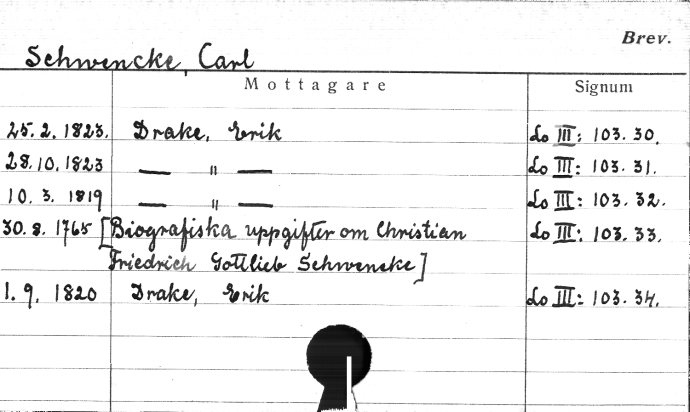 Brev.
Schwencke, Carl
Mottagare Signum
25. 2. 1823. Drake, Erik Lo III: 103. 30.
28. 10. 1823 — " — Lo III: 103. 31.
10. 3. 1819 — " — Lo III: 103. 32.
30. 8. 1765 [Biografiska uppgifter om Christian Lo III: 103. 33.
Friedrich Gottlieb Schwencke]
1. 9. 1820 Drake, Erik Lo III: 103. 34.